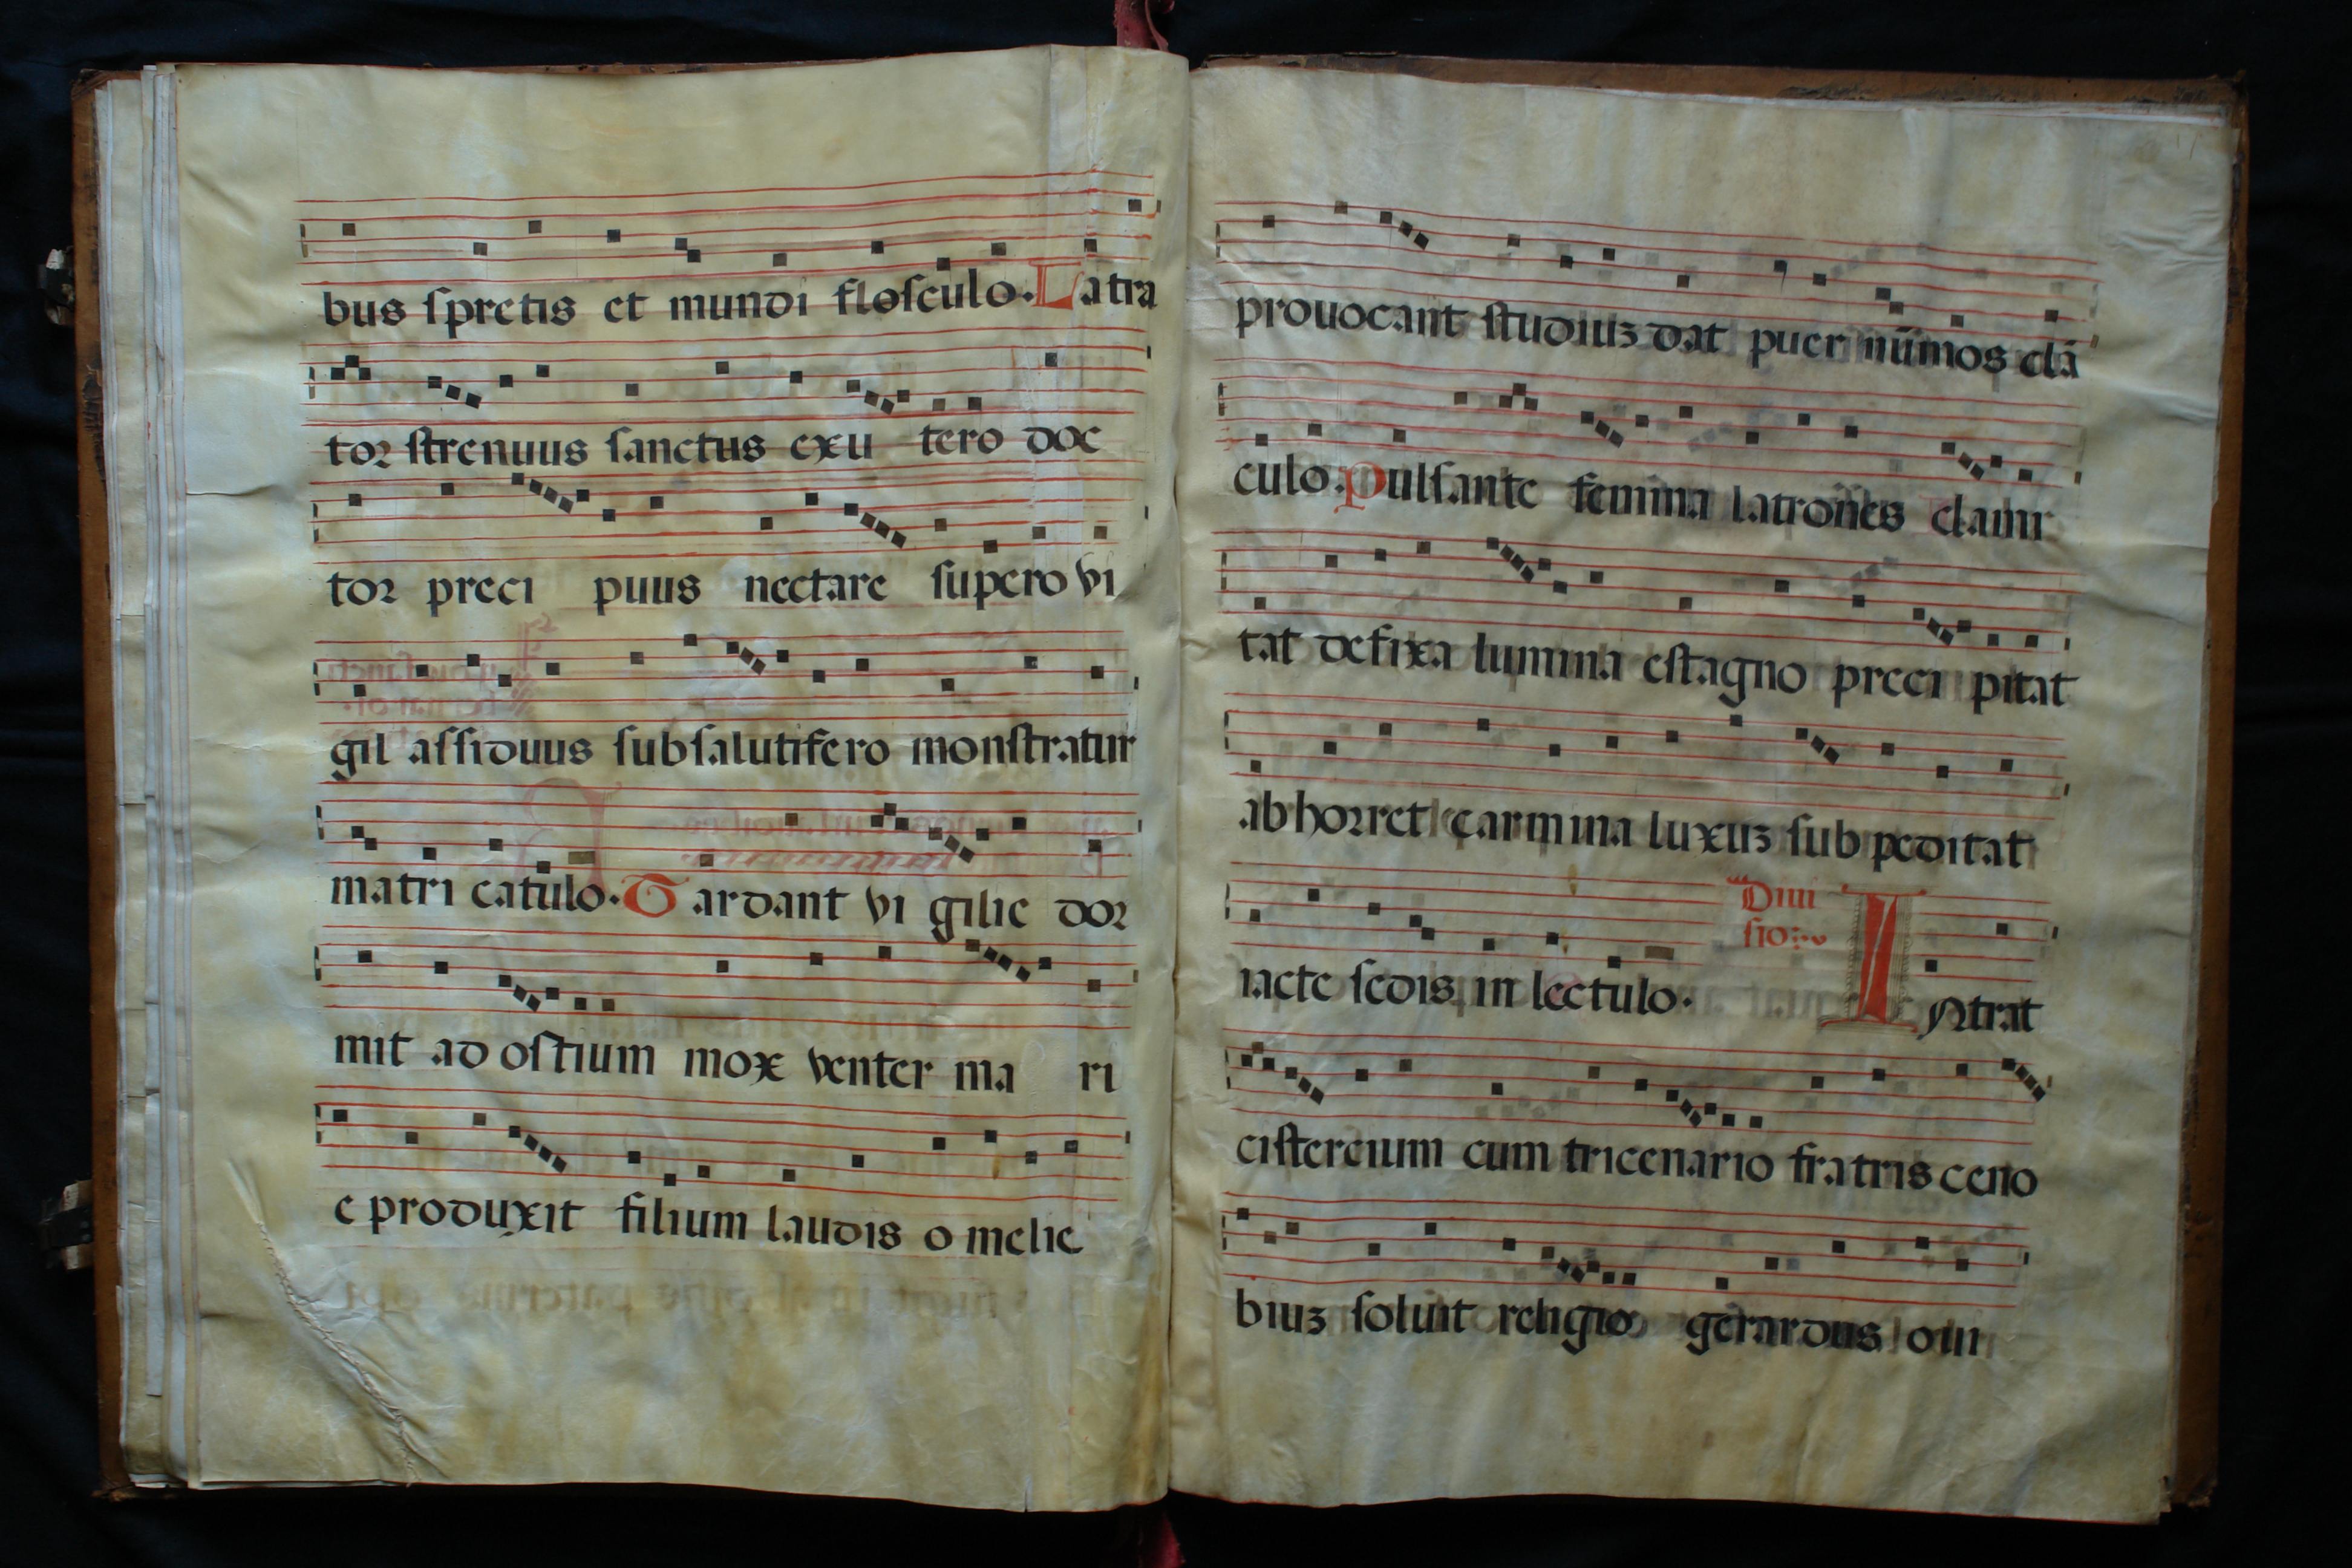 bus spretis et mundi flosculo. Latra
tor strenuus sanctus exu tero doc
tor preci puus nectare supero vi
gil assiduus subsalutifero monstratur
matri catulo. Tardant vi gilie dor
mit ad ostium mox venter ma ri
e produxit filium laudis o melie
prouocant studiuz dat puer nūmos clā
culo. Pulsante femina latrones clami
tat defixa lumina estagno preci pitat
abhorret carmina luxuz sub peditat
iacte sedis in lectulo.
Diui
sio:
Intrat
cistercium cum tricenario fratris ceno
biuz soluit religio gerardus oui